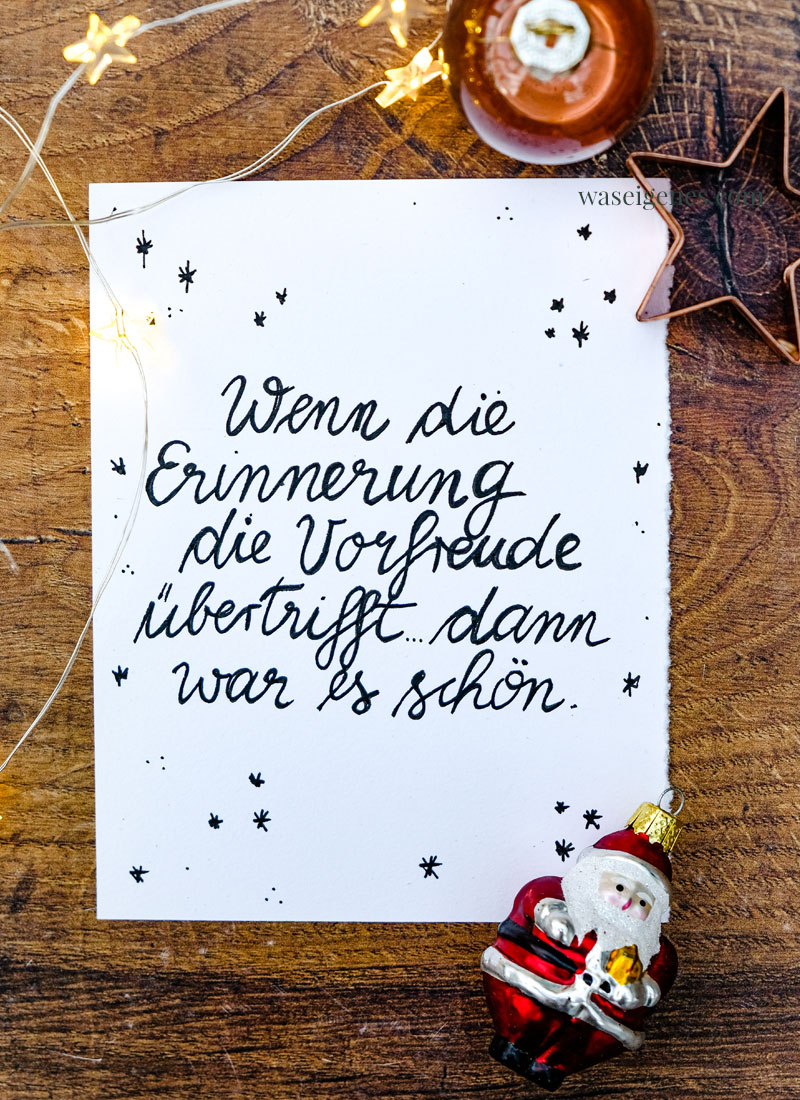 waseigenes.com
Wenn die
Erinnerung
die Vorfreude
übertrifft... dann
war es schön.